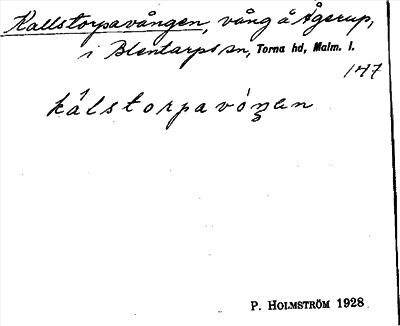 Kallstorpavången, vång å Ågerup,
i Blentarps sn, Torna hd, Malm. l.
147
kálstorpavóŋen
P. HOLMSTRÖM 1928